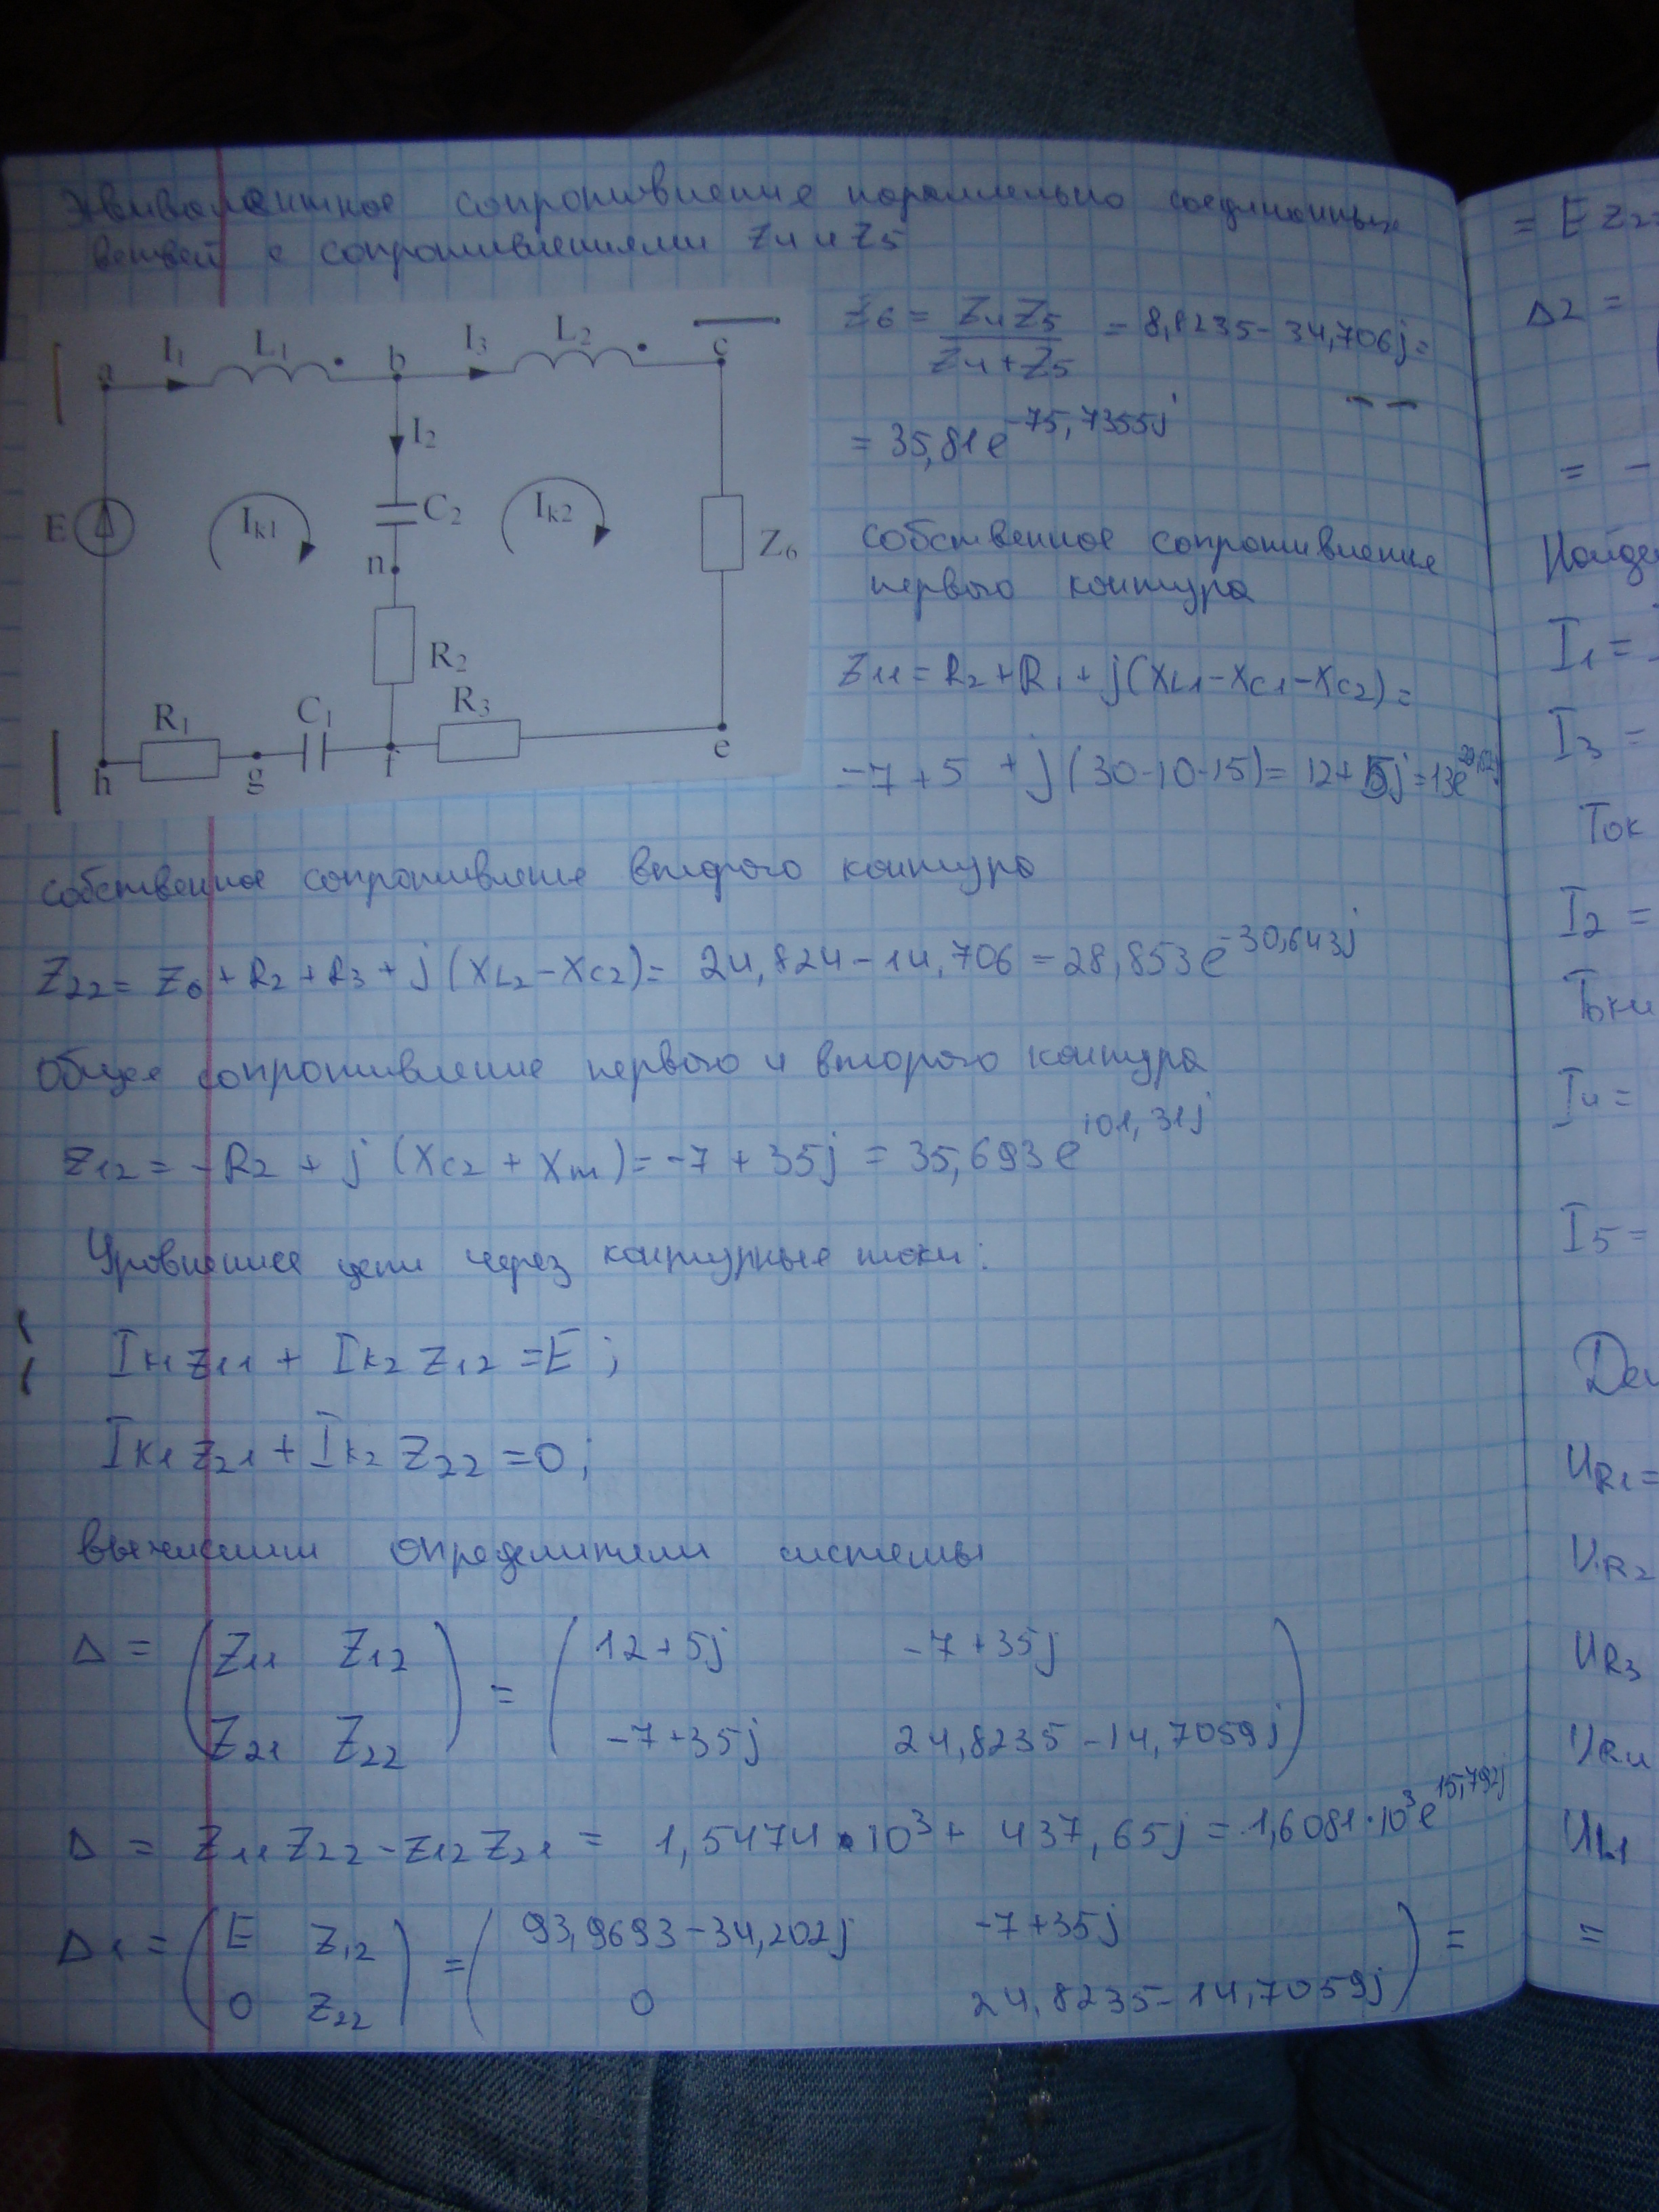 Эквивалентное сопротивление параллельно соединенных
ветвей с сопротивлениями Z4 и Z5
a I1 L1 b I3 L2 c
I2
E Ik1 C2 Ik2
n Z6
R2
R1 C1 R3
h g f e
Z6 = Z4 Z5 / Z4 + Z5 = 8,8235 - 34,706j =
= 35,81e^-75,7355j
собственное сопротивление
первого контура
Z11 = R2 + R1 + j(XL1 - XC1 - XC2) =
= 7 + 5 + j(30-10-15) = 12 + 5j = 13e
собственное сопротивление второго контура
Z22 = Z6 + R2 + R3 + j(XL2 - XC2) = 24,824 - 14,706 = 28,853e^-30,643j
Общее сопротивление первого и второго контура
Z12 = -R2 + j (XC2 + Xm) = -7 + 35j = 35,693e^101,31j
Уровнение цепи через контурные токи:
Ik1 Z11 + Ik2 Z12 = E ;
Ik1 Z21 + Ik2 Z22 = 0 ;
вычислим определители системы
Δ = ( Z11 Z12 ) = ( 12+5j -7+35j )
( Z21 Z22 ) ( -7+35j 24,8235 - 14,7059j )
Δ = Z11 Z22 - Z12 Z21 = 1,5474·10³ + 437,65j = 1,6081·10³e^15,792j
Δ1 = ( E Z12 ) = ( 93,9693 - 34,202j -7+35j ) =
( 0 Z22 ) ( 0 24,8235 - 14,7059j )
= E Z22
Δ2 =
= -
Найде
I1 =
I3 =
Ток
I2 =
Токи
I4 =
I5 =
UR1 =
UR2
UR3
UR4
UL1
=